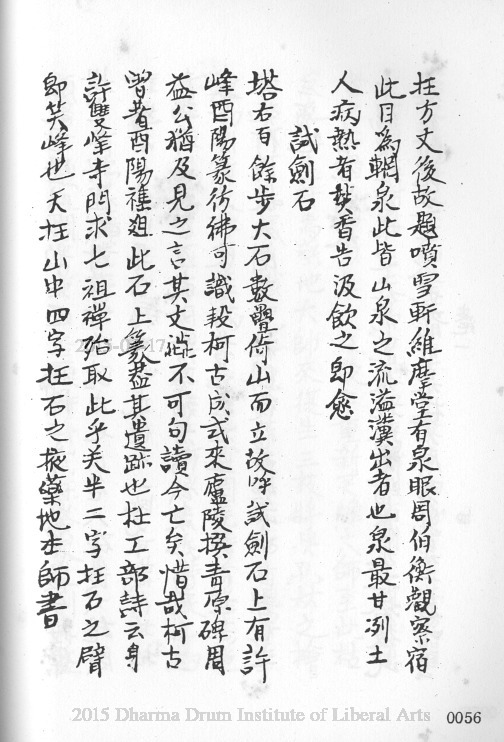 在方丈後故題噴雪軒維摩堂有泉眼周伯衡觀察宿
此目為輞泉此皆山泉之流溢瀵出者也泉最甘冽土
人病熱者焚香告汲飲之即愈
試劍石
塔右百餘步大石數疊倚山而立故呼試劍石上有許
峰酉陽篆彷彿可識段柯古成式來廬陵撰青原碑周
益公猶及見之言其文澁不可句讀今亡矣惜哉柯古
嘗著酉陽襍俎此石上篆蓋其遺跡也杜工部詩云身
許雙峰寺門求七祖禪殆取此乎关半二字在石之臂
即笑峰也天在山中四字在石之掖藥地本師書
2015 Dharma Drum Institute of Liberal Arts 0056